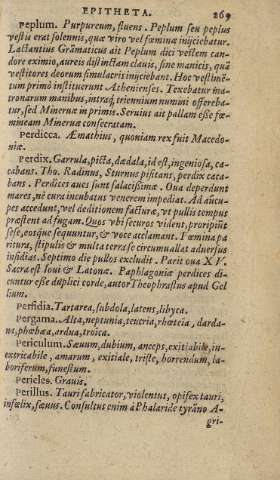 EPITHETA. 269
Peplum. Purpureum, fluens. Peplum seu peplus
vestis erat solennis, quæ viro vel fœminæ iniiciebatur.
Lactantius Grãmaticus ait Peplum dici vestem can-
dore eximio, aureis distinctam clauis, sine manicis, quâ
vestitores deorum simulacris iniiciebant. Hoc vestimẽ-
tum primò instituerunt Athenienses. Texebatur ma-
tronarum manibus, intraq́ triennium numini offereba-
tur, sed Mineruæ in primis. Seruius ait pallam esse fœ-
mineam Mineruæ consecratam.
Perdicca. Æmathius, quoniam rex fuit Macedo-
niæ.
Perdix. Garrula, picta, dædala, id est, ingeniosa, ca-
cabans. Tho. Radinus, Sturnus pisitans, perdix caca-
bans. Perdices aues sunt salacissimæ. Oua deperdunt
mares, nè cura incubatus venerem impediat. Ad aucu-
pes accedunt, vel deditionem facturæ, vt pullis tempus
præstent ad fugam. Quos vbi securos vident, proripiũt
sese, eosque sequuntur, & voce acclamant. Fœmina pa
ritura, stipulis & multa terra se circumuallat aduersus
insidias. Septimo die pullos excludit. Parit oua XV.
Sacra est Ioui & Latonæ. Paphlagoniæ perdices di-
cuntur esse duplici corde, autor Theophrastus apud Gel
lium.
Perfidia. Tartarea, subdola, latens, libyca.
Pergama. Alta, neptunia, teucria, rhœteia, darda-
na, phœbæa, ardua, troica.
Periculum. Sæuum, dubium, anceps, exitiabile, in-
extricabile, amarum, exitiale, triste, horrendum, la-
boriferum, funestum.
Pericles. Grauis.
Perillus. Tauri fabricator, violentus, opifex tauri,
infœlix, sæuus. Consultus enim à Phalaride tyrãno A-
gri-